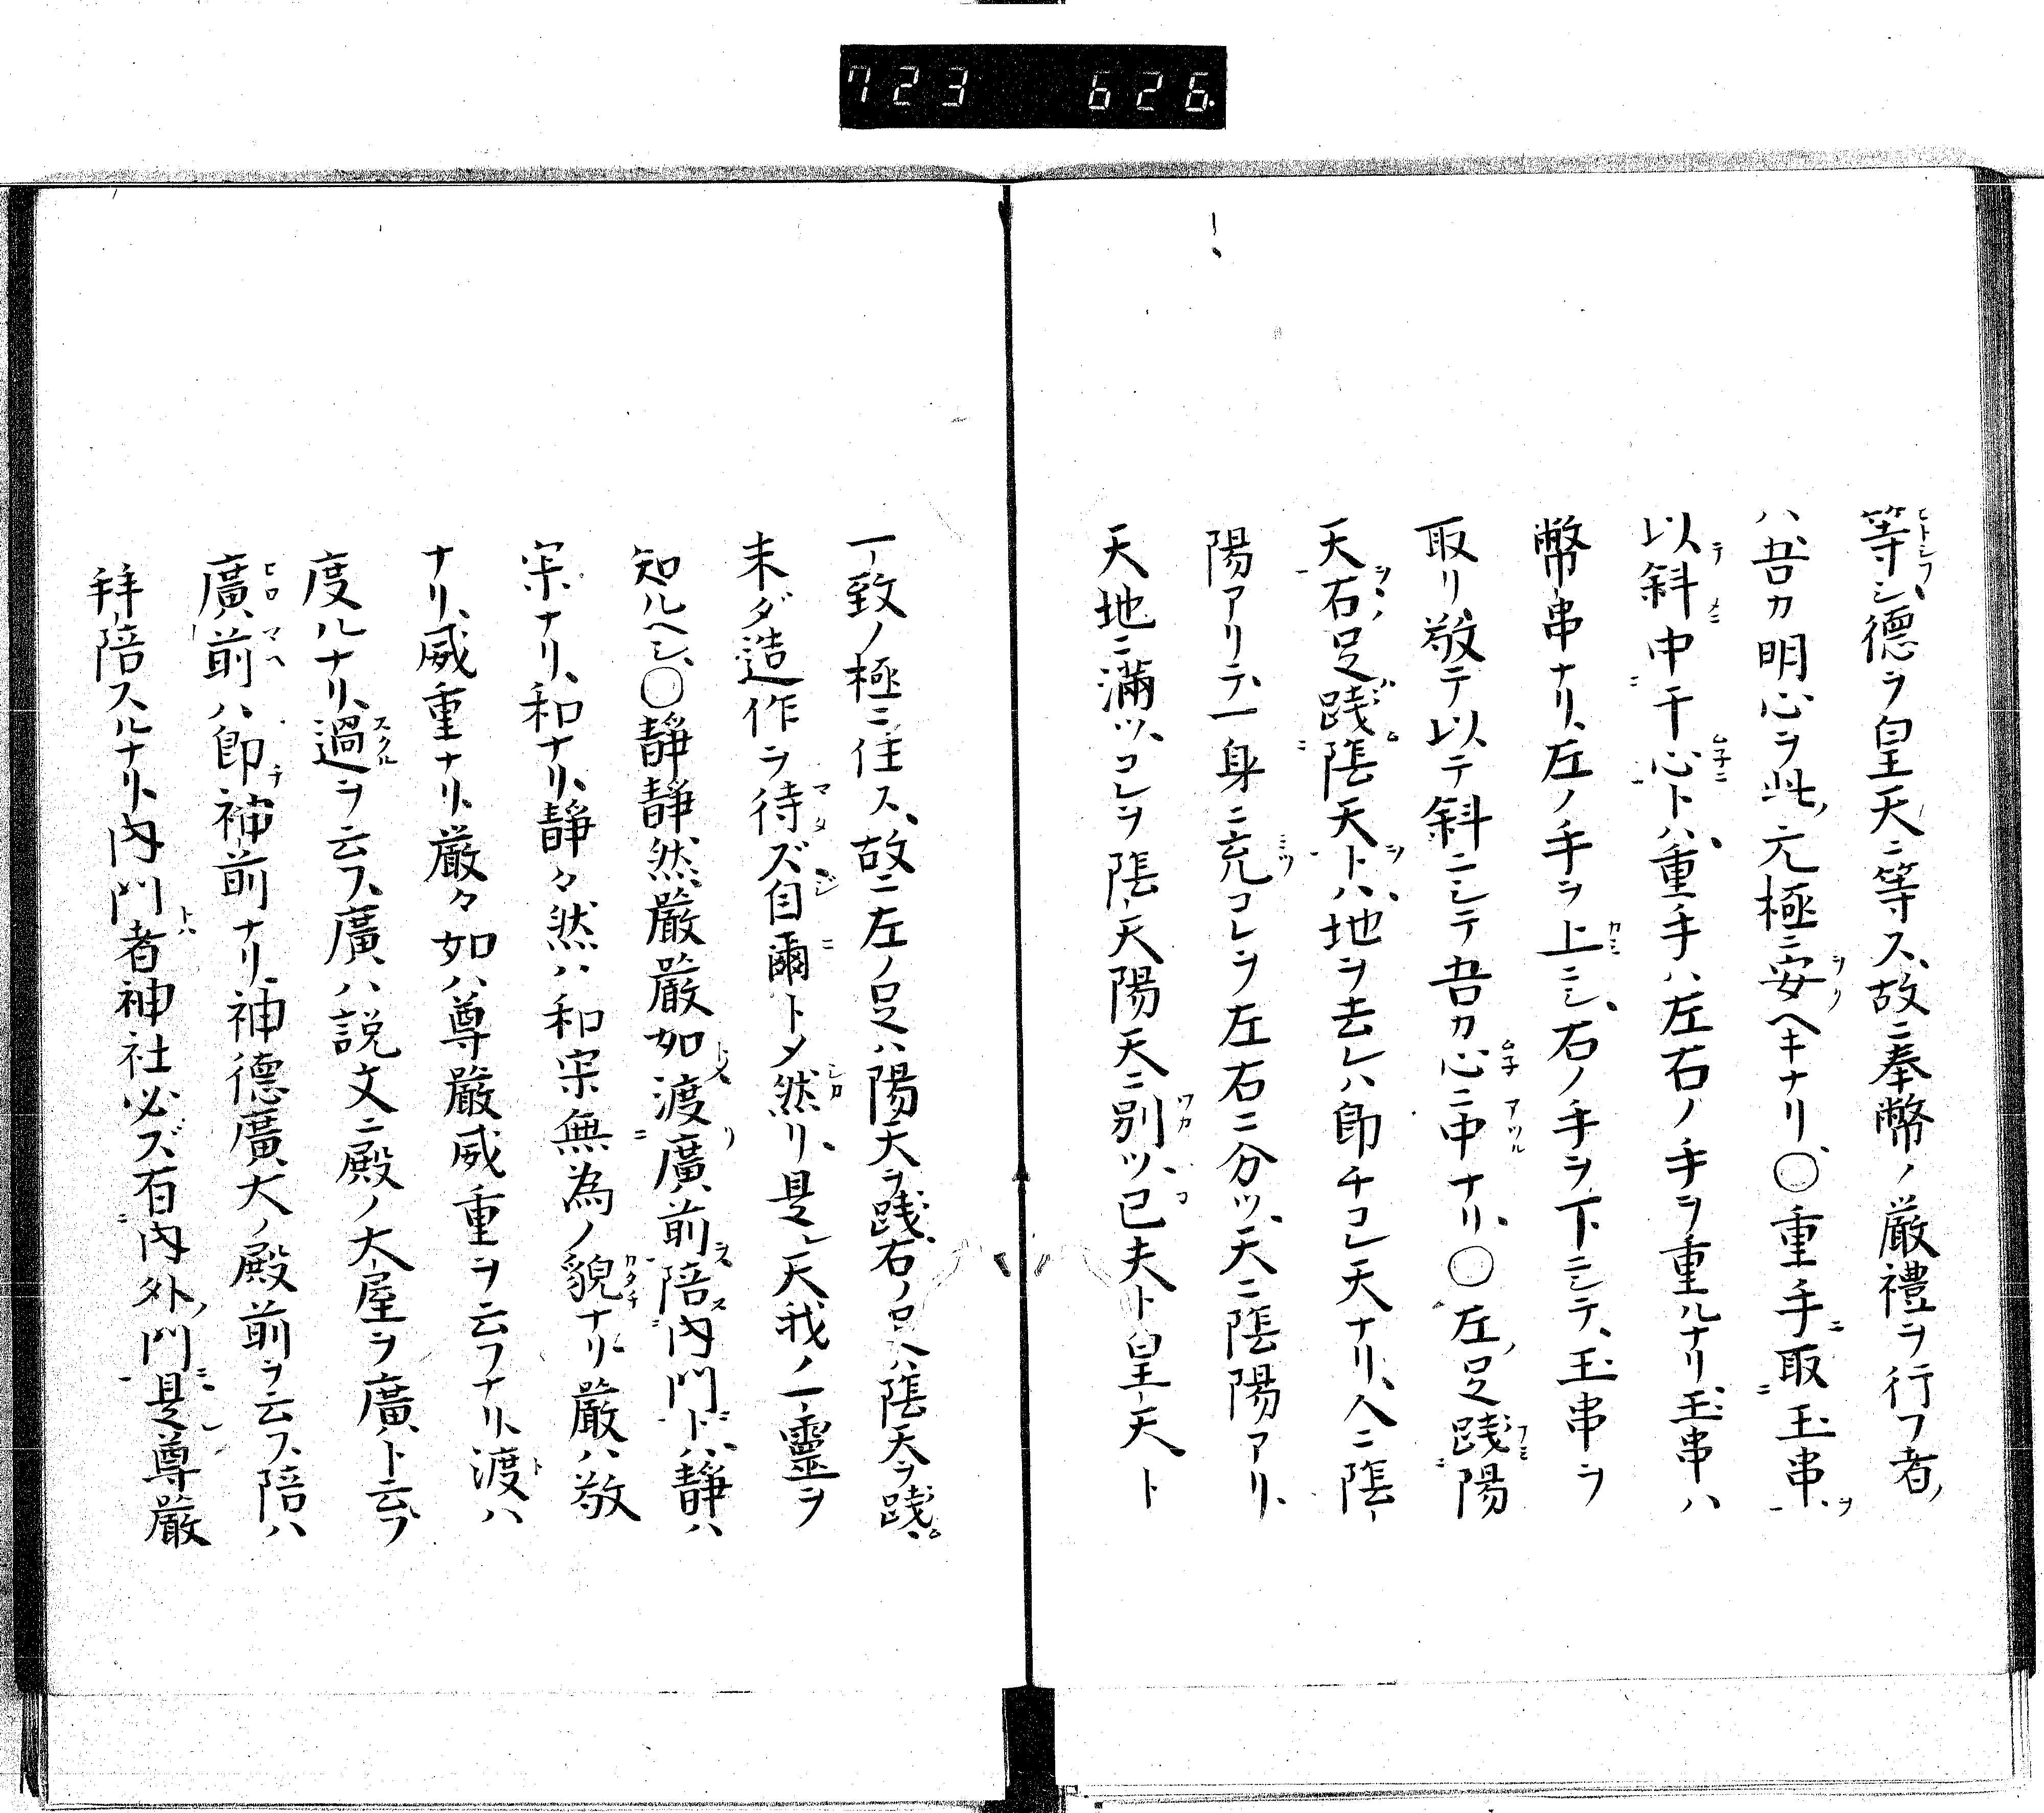 723 626
等シ、德ヲ皇天ニ等ス、故ニ奉幣ノ厳禮ヲ行フ者ノ
ハ、吾カ明心ヲ此ノ元極ニ安ヘキナリ、〇重手取玉串
以斜中干心トハ重手ハ左右ノ手ヲ重ルナリ玉串ハ
幣串ナリ、左ノ手ヲ上ニシ、右ノ手ヲ下ニシテ、玉串ヲ
取リ敬テ以テ斜ニシテ吾カ心ニ中ナリ、〇左ノ足踐陽
天右足踐陰天トハ、地ヲ去レハ即チコレ天ナリ、人ニ陰
陽アリテ、一身ニ充コレヲ左右ニ分ツ、天ニ陰陽アリ、
天地ニ滿ツ、コレヲ陰天陽天ニ別ツ、已夫ト皇天ト
一致ノ極ニ住ス、故ニ左ノ足ハ陽天ヲ踐、右ノ足ハ陰天ヲ踐、
末ダ造作ヲ待ズ自爾トメ然リ、是レ天我ノ一靈ヲ
知ルヘシ、〇靜靜然厳厳如渡廣前陪内門トハ、靜ハ
宗ナリ、和ナリ、靜々然ハ和宗無為ノ貌ナリ、厳ハ敬
ナリ、威重ナリ、厳々如ハ尊厳威重ヲ云フナリ、渡ハ
度ルナリ、過ヲ云フ、廣ハ説文ニ殿ノ大屋ヲ廣ト云フ、
廣前ハ即神前ナリ、神德廣大ノ殿前ヲ云フ、陪ハ
拜陪スルナリ、内門者神社必ズ有内外ノ門是尊厳